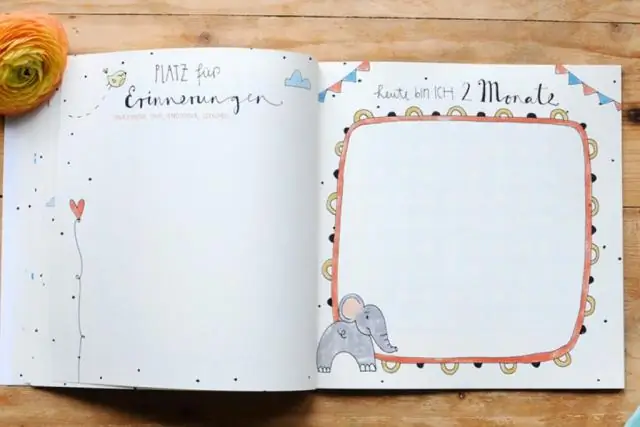 PLATZ für
Erinnerungen
heute bin ICH 2 Monate